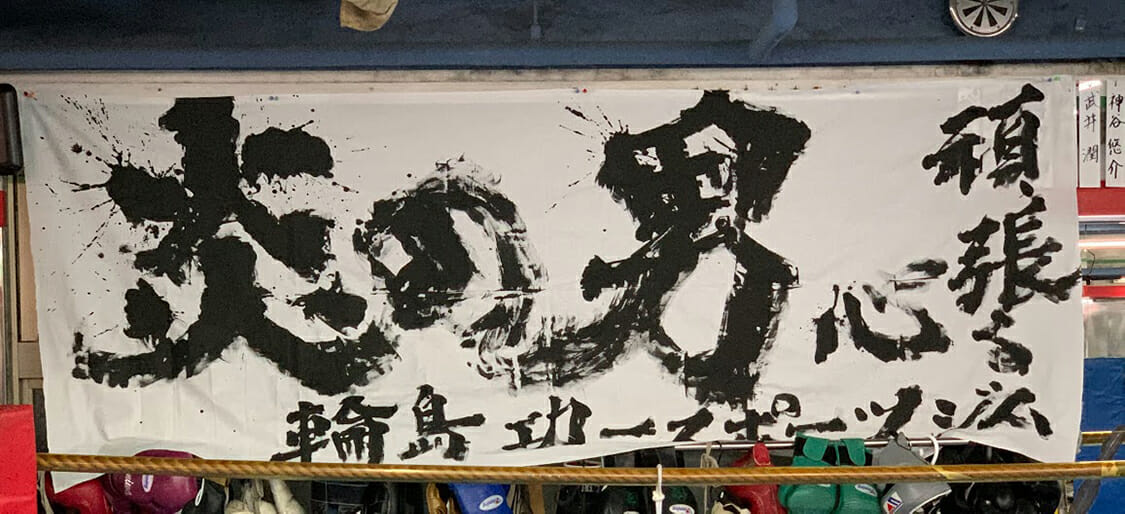 炎の男
頑張る
心
輪島功一スポーツジム
神谷悠介
武井潤